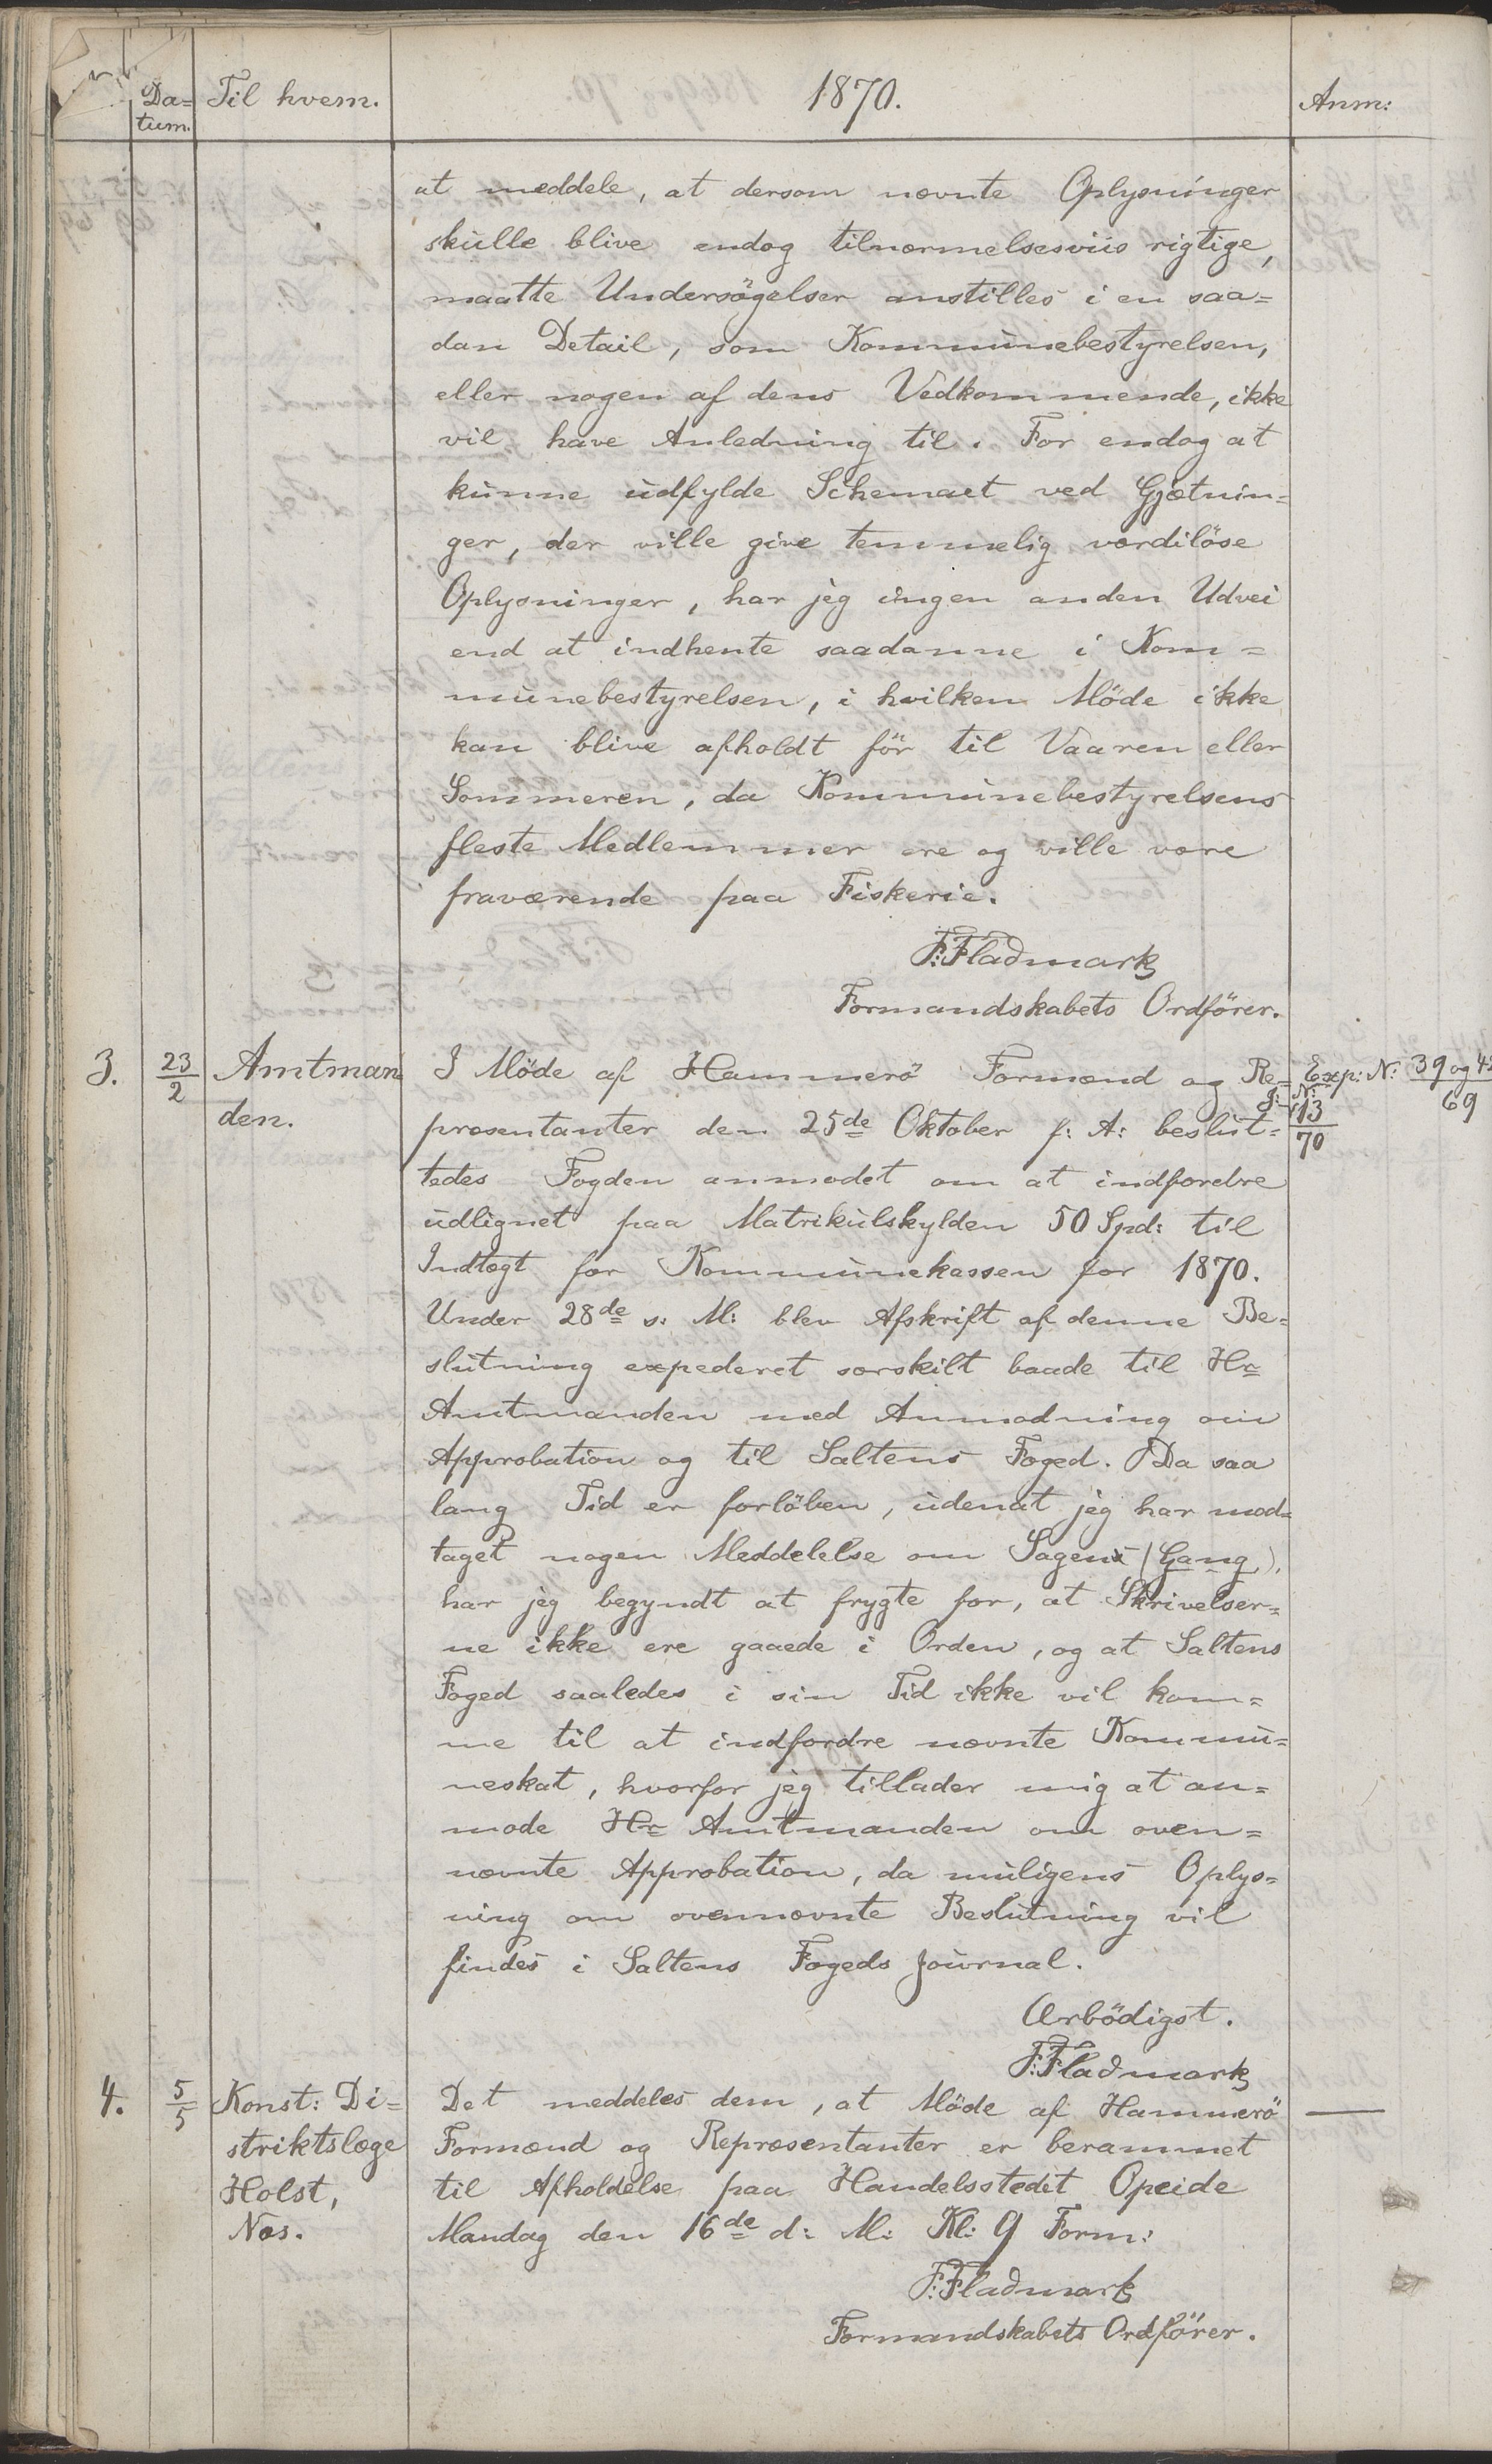 Da= Til hvem. 1870. Anm:
tum.
at meddele, at dersom nævnte Oplysninger
skulle blive endog tilnærmelsesviis rigtige,
maatte Undersögelser anstilles i en saa=
dan Detail, som Kommunebestyrelsen,
eller nogen af dens Vedkommende, ikke
vil have Anledning til. For endog at
kunne udfylde Schemaet ved Gjætnin=
ger, der ville give temmelig værdilöse
Oplysninger, har jeg ingen anden Udvei
end at indhente saadanne i Kom=
munebestyrelsen, i hvilken Möde ikke
kan blive afholdt för til Vaaren eller
Sommeren, da Kommunebestyrelsens
fleste Medlemmer ere og ville være
fraværende paa Fiskerie.
F: Fladmark
Formandskabets Ordförer.
3. 23/2 Amtman= I Möde af Hammerö Formænd og Re= Exp: N: 39 og 42/69
den. præsentanter den 25de Oktober f: A: beslut= J: N: 13/70
tedes Fogden anmodet om at indfordre
udlignet paa Matrikulskylden 50 Spd: til
Indtægt for Kommunekassen for 1870.
Under 28de s: M: blev Afskrift af denne Be=
slutning expederet særskilt baade til Hr
Amtmanden med Anmodning om
Approbation og til Saltens Foged. Da saa
lang Tid er forlöben, udenat jeg har mod=
taget nogen Meddelelse om Sagens (Gang),
har jeg begyndt at frygte for, at Skrivelser=
ne ikke ere gaaede i Orden, og at Saltens
Foged saaledes i sin Tid ikke vil kom=
me til at indfordre nævnte Kommu=
neskat, hvorfor jeg tillader mig at an=
mode Hr Amtmanden om oven=
nævnte Approbation, da muligens Oplys=
ning om ovennævnte Beslutning vil
findes i Saltens Fogeds Journal.
Ærbödigst.
F: Fladmark
4. 5/5 Konst: Di= Det meddeles dem, at Möde af Hammerö —
striktslæge Formænd og Repræsentanter er berammet
Holst, til Afholdelse paa Handelsstedet Opeide
Næs. Mandag den 16de d: M: Kl: 9 Form:
F: Fladmark
Formandskabets Ordförer.